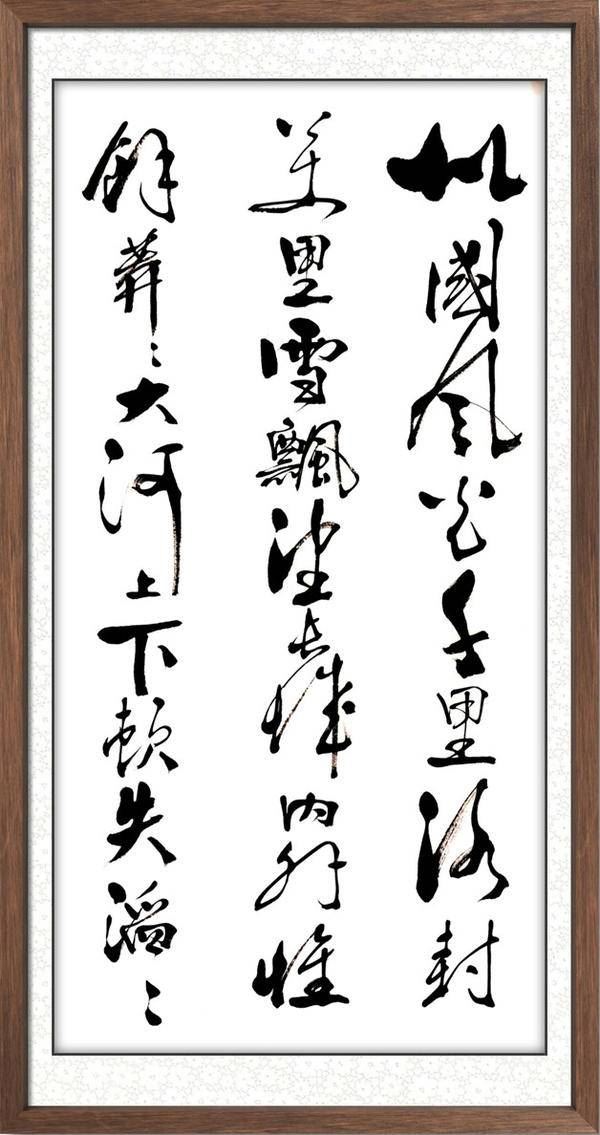 北國風光千里冰封
萬里雪飄望長城内外惟
餘莽〻大河上下頓失滔〻